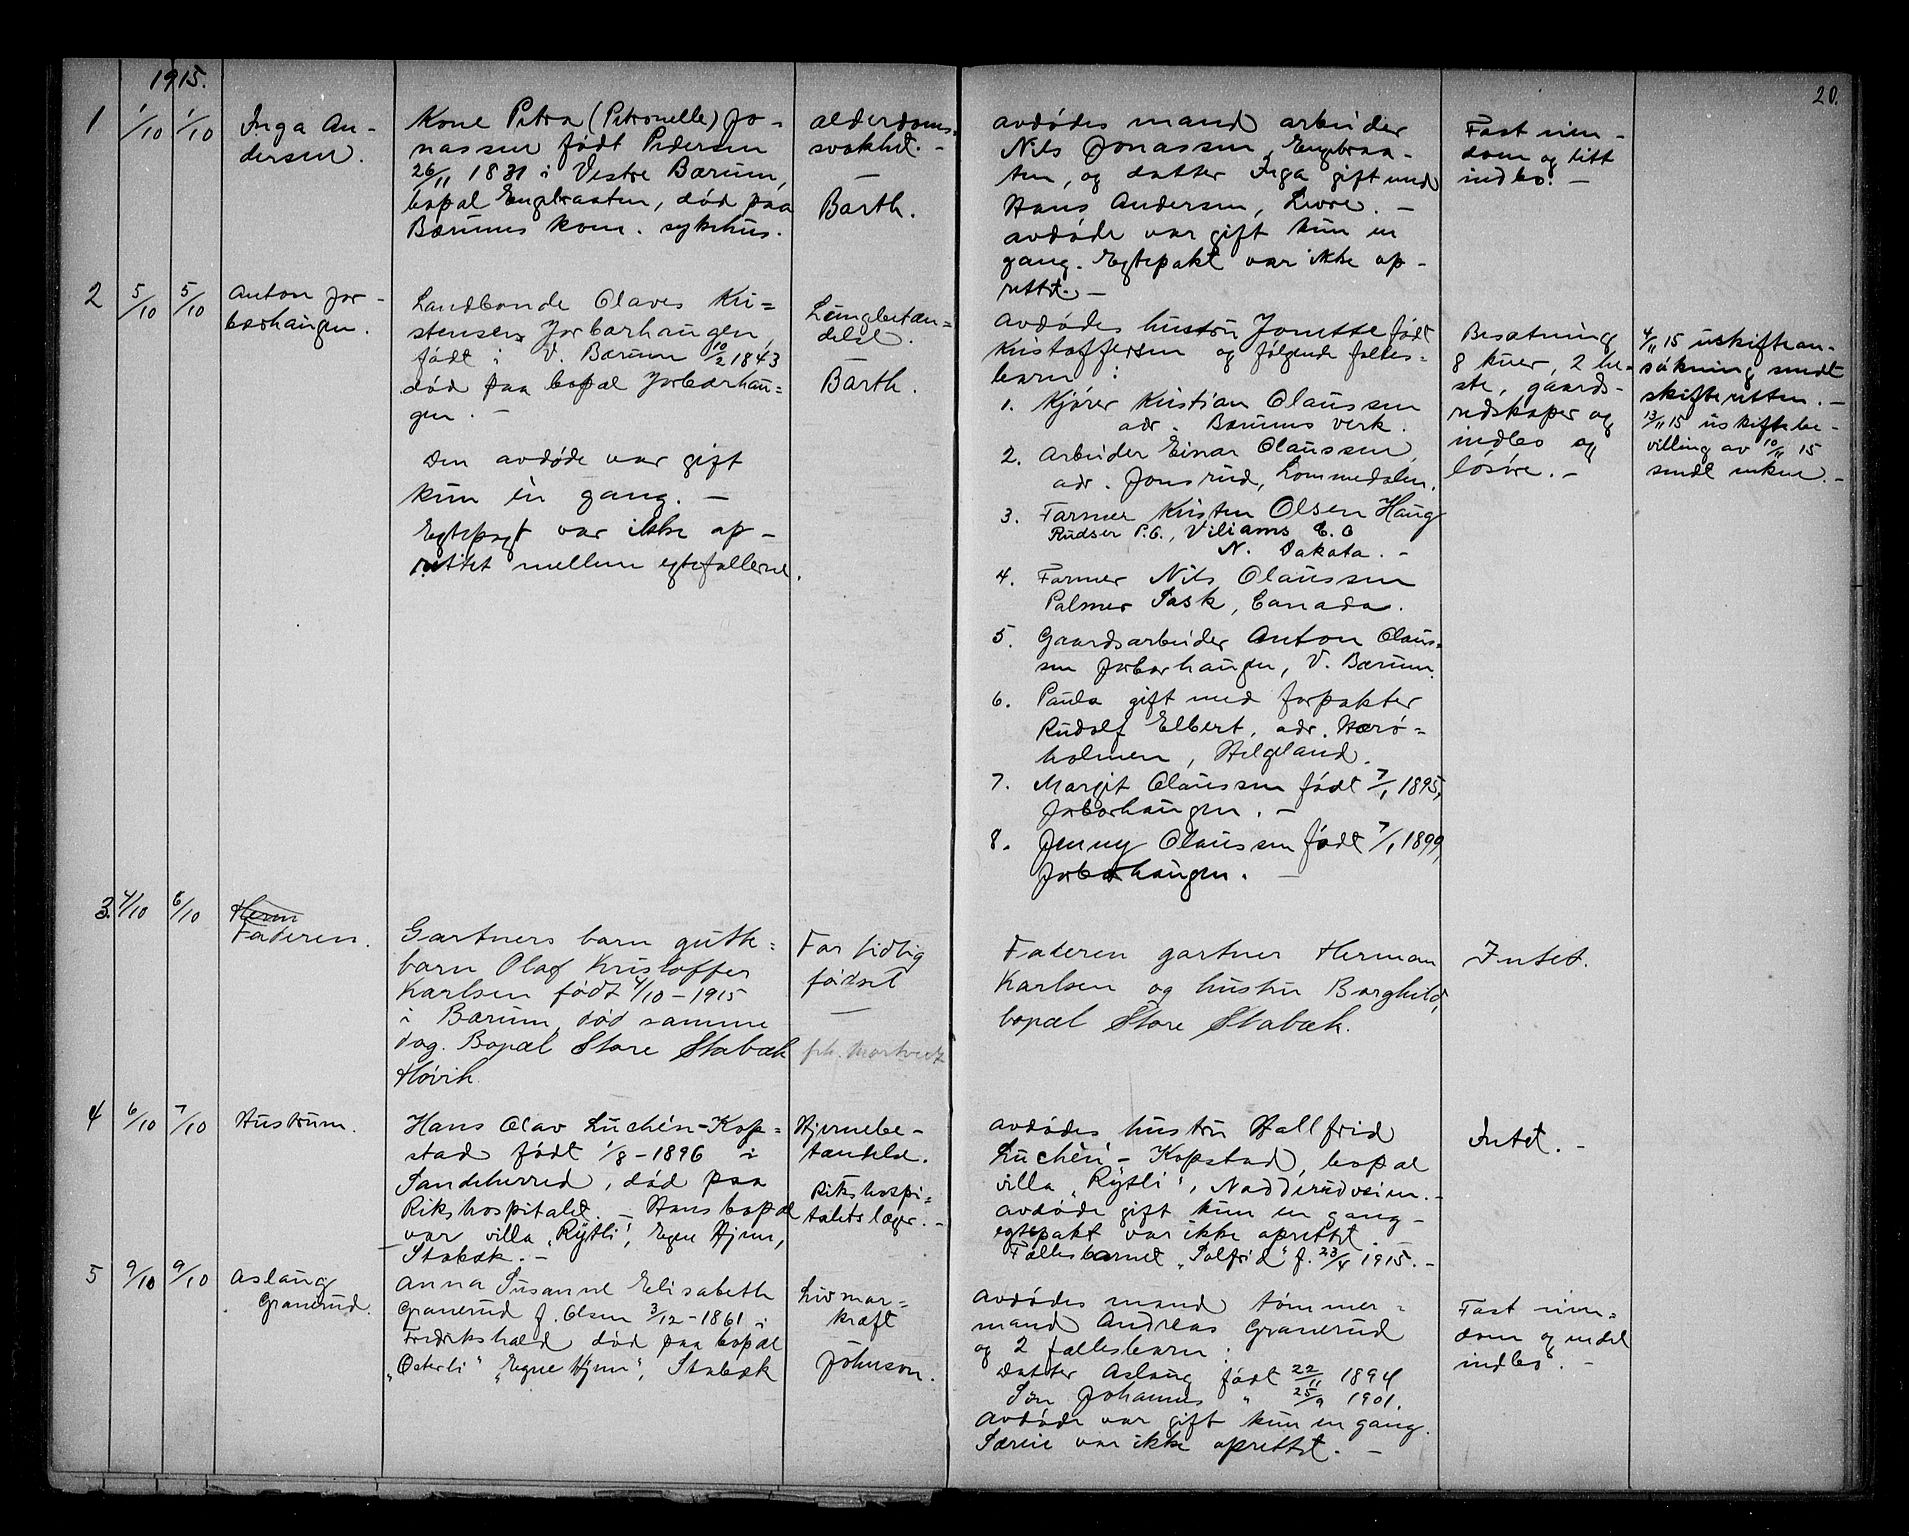 1915.
20.
1
1/10
1/10
Inga An-
dersen.
Kone Petra (Petronelle) Jo-
nassen født Pedersen
26/11 1831 i Vestre Bærum,
bopæl Engebraaten, død paa
Bærums kom. sykehus.
alderdoms-
svakhet. -
Barth.
avdødes mand arbeider
Nils Jonassen, Engebraa-
ten, og datter Inga gift med
Hans Andersen, . -
avdøde var gift kun en
gang. Egtepakt var ikke op-
rettet. -
Fast eien-
dom og litt
indbo. -
2
5/10
5/10
Anton Jor-
bærhaugen.
Landbonde Olaves Kri-
stensen, Jorbærhaugen,
født i V. Bærum 10/2 1843
død paa bopæl Jorbærhau-
gen. -
Den avdøde var gift
kun én gang. -
Egtepagt var ikke op-
rettet mellem egtefællerne.
Lungebetæn-
delse.
Barth.
Avdødes hustru Jonette født
Kristoffersen og følgende fælles-
barn:
1. Kjører Kristian Olaussen
adr. Bærums verk.
2. Arbeider Einar Olaussen,
adr. Jonsrud, Lommedalen.
3. Farmer Kristen Olsen Haug
Rudser P.O., Viliams C. O
N. Dakota. -
4. Farmer Nils Olaussen
Palmer Sask, Canada.
5. Gaardsarbeider Anton Olaus-
sen Jorbærhaugen, V. Bærum.
6. Paula gift med forpakter
Rudolf Elbert, adr. Herø-
holmen, Helgeland.
7. Margit Olaussen født 7/1 1895,
Jorbærhaugen. -
8. Jenny Olaussen født 7/1 1899,
Jorbærhaugen. -
Besætning
8 kuer, 2 he-
ste, gaards-
redskaper og
indbo og
løsøre. -
4/11 15 uskiftean-
søkning sendt
skifteretten. -
13/11 15 uskiftebe-
villing av 10/11 15
sendt enken. -
3.
4/10
6/10
Herm
Faderen.
Gartners barn gutte-
barn Olaf Kristoffer
Karlsen født 4/10 - 1915
i Bærum, død samme
dag. Bopæl Store Stabæk
Høvik.
For tidlig
fødsel
Faderen gartner Herman
Karlsen og hustru Borghild,
bopæl Store Stabæk.
Intet.
4
6/10
7/10
Hustruen.
Hans Olav Luchén-Kop-
stad født 1/8 - 1896 i
Sandeherred, død paa
Rikshospitalet. - Hans bopæl
var villa "Rytli", Egne Hjem,
Stabæk. -
Hjernebe-
tændelse.
Rikshospi-
talets læger. -
avdødes hustru Hallfrid
Luchén - Kopstad, bopæl
villa "Rytli", Nadderudveien. -
avdøde gift kun en gang -
egtepakt var ikke oprettet. -
Fællesbarnet "Solfrid" f. 23/4 1915. -
Intet. -
5
9/10
9/10
Aslaug
Granerud.
Anna Susanne Elisabeth
Granerud f. Olsen 3/12 - 1861 i
Fredrikshald død paa bopæl
"Østerli" "Egne Hjem", Stabæk
Livmor-
kræft
Johnson.
Avdødes mand tømmer-
mand Andreas Granerud
og 2 fællesbarn:
Datter Aslaug født 22/11 1894
Søn Johannes " 25/9 1901.
Avdøde var gift kun en gang.
Særeie var ikke oprettet. -
Fast eien-
dom og endel
indbo. -